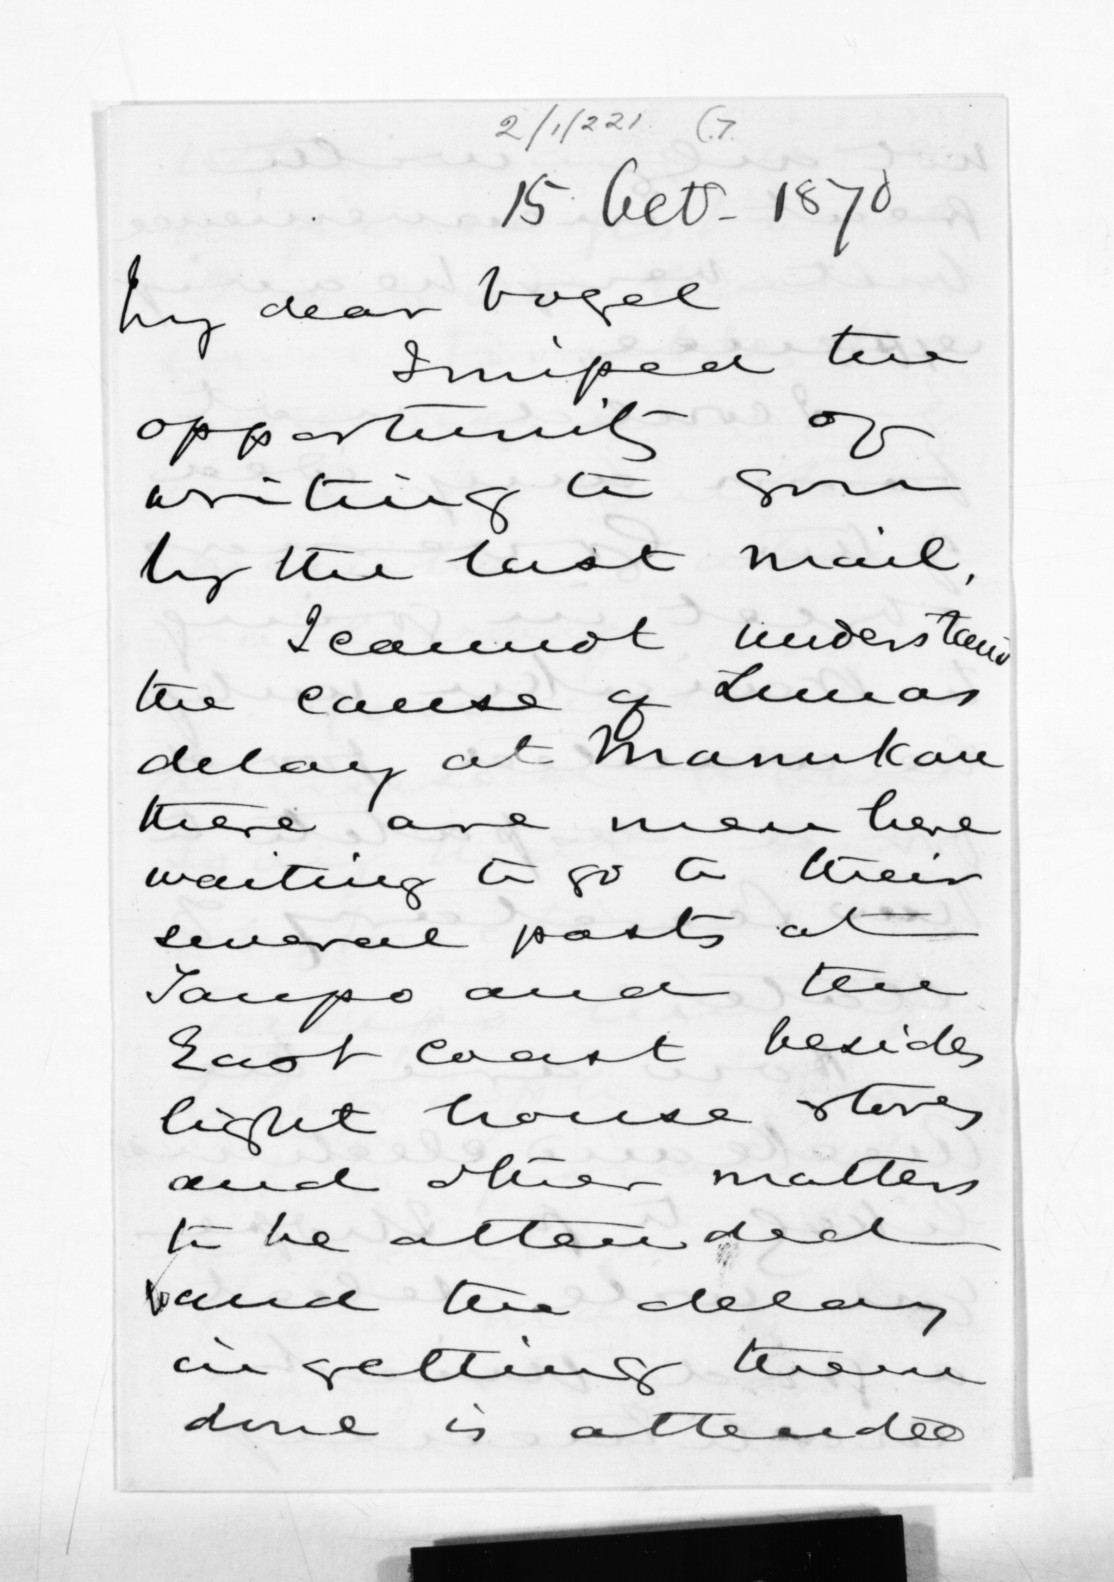 2/1/221 (7.
15 Octr - 1870
My dear Vogel
I missed the
opportunity of
writing to you
by the last mail,
I cannot understand
the cause of Lunas
delay at Manukau
there are men here
waiting to go to their
several posts at
Taupo and the
East Coast besides
light house stores
and other matters
to be attended
and the delay
in getting them
done is attended